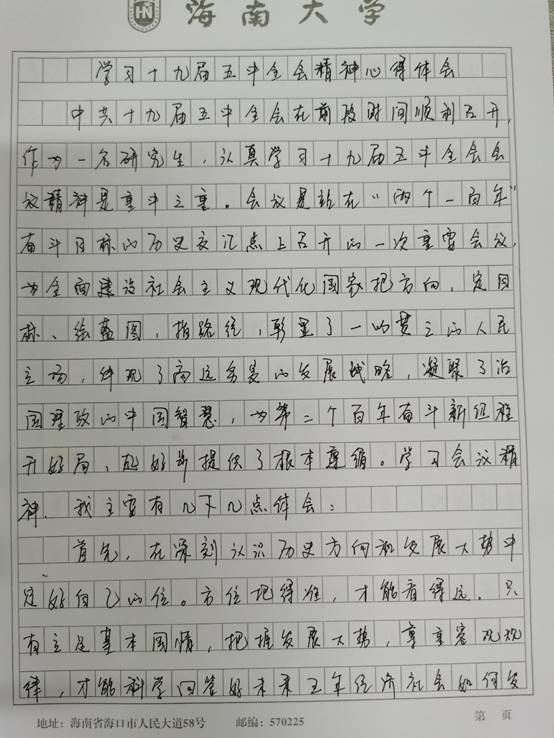 海南大学
学习十九届五中全会精神心得体会
中共十九届五中全会在前段时间顺利召开,
作为一名研究生,认真学习十九届五中全会会
议精神是重中之重。会议是站在“两个一百年”
奋斗目标的历史交汇点上召开的一次重要会议,
为全面建设社会主义现代化国家把方向,定目
标、绘蓝图,指路线,彰显了一以贯之的人民
立场,体现了高远务实的发展战略,凝聚了治
国理政的中国智慧,为第二个百年奋斗新征程
开好局、起好步提供了根本遵循。学习会议精
神,我主要有以下几点体会:
首先,在深刻认识历史方向和发展大势中
定好自己的位。方位把得准,才能看得远。只
有立足基本国情,把握发展大势,尊重客观规
律,才能科学回答好未来五年经济社会如何发
地址:海南省海口市人民大道58号 邮编:570225 第 页